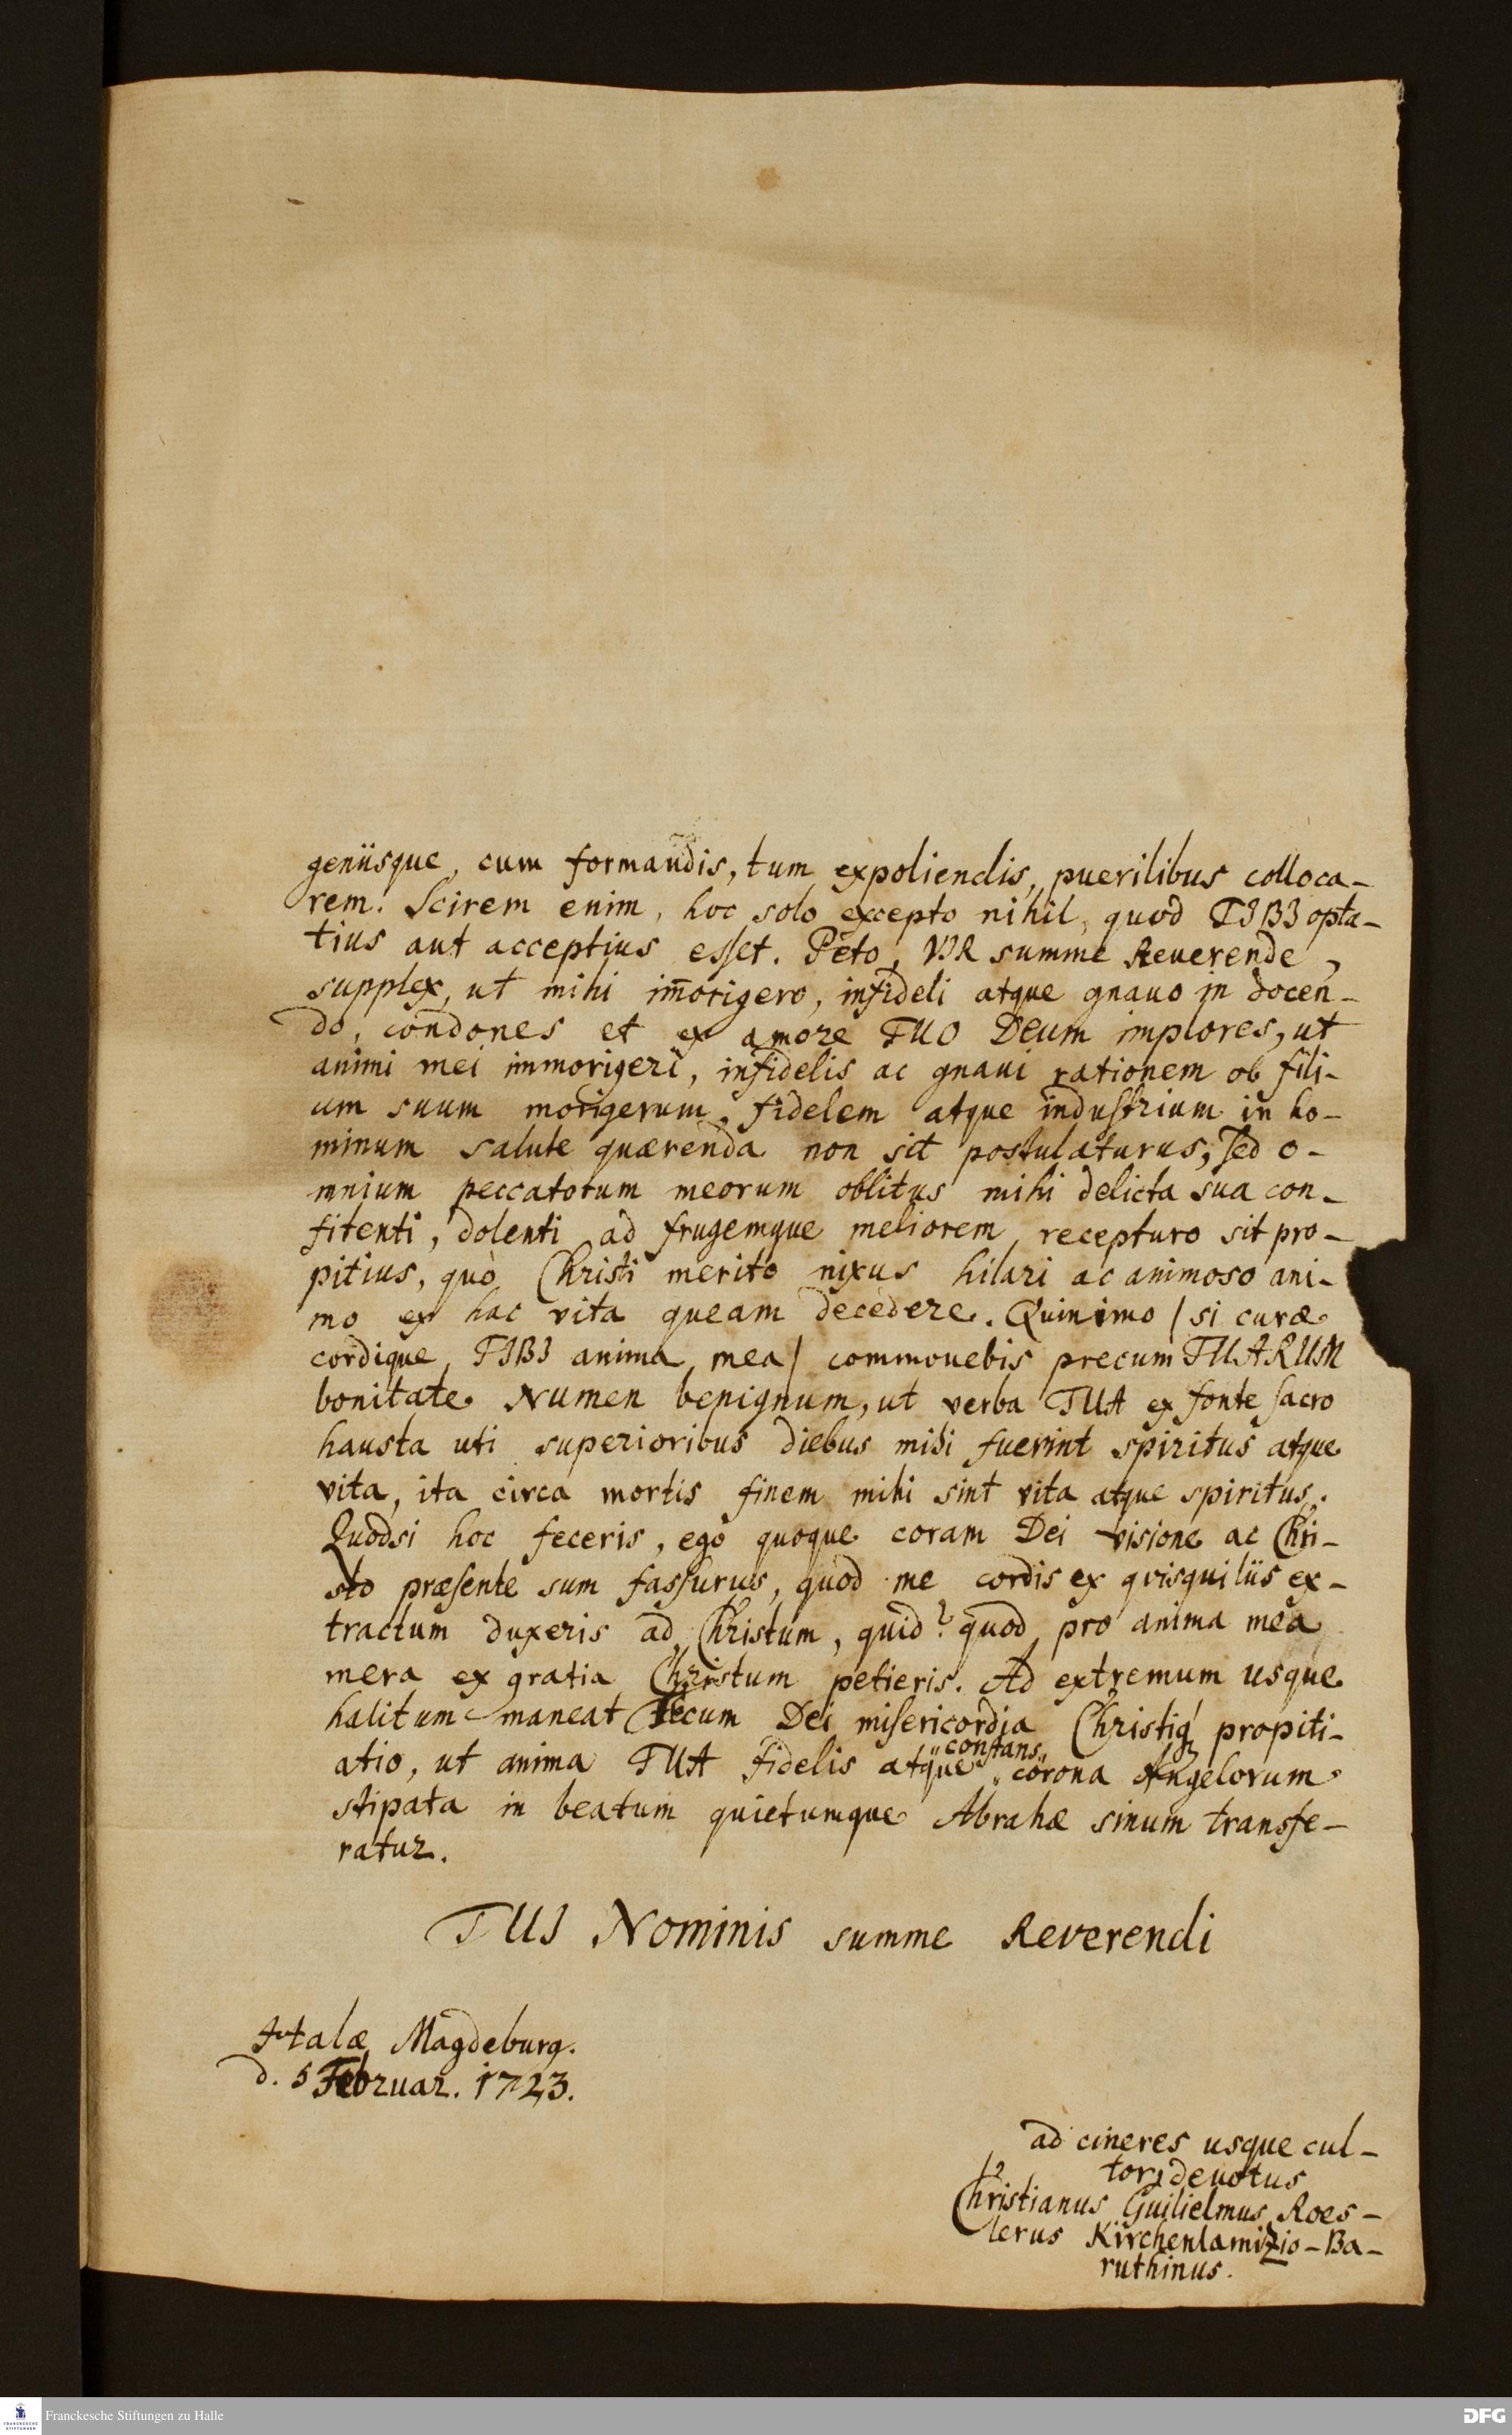 geniisque, cum formandis, tum expoliendis, puerilibus colloca-
rem. Scirem enim, hoc solo excepto nihil, quod TIBI opta-
tius aut acceptius esset. Peto, VIR summe Reuerende,
supplex, ut mihi im̄origero, infideli atque gnauo in docen-
do, condones et ex amore TUO Deum implores, ut
animi mei immorigeri, infidelis ac gnaui rationem ob fili-
um suum morigerum, fidelem atque industrium in ho-
minum salute quærenda non sit postulaturus; sed o-
mnium peccatorum meorum oblitus mihi delicta sua con-
fitenti, dolenti ad frugemque meliorem recepturo sit pro-
pitius, quò Christi merito nixus hilari ac animoso ani-
mo ex hac vita queam decedere. Quinimo / si curæ
cordique TIBI anima mea / commouebis precum TUARUM
bonitate Numen benignum, ut verba TUA ex fonte sacro
hausta uti superioribus diebus mihi fuerint spiritus atque
vita, ita circa mortis finem mihi sint vita atque spiritus.
Quodsi hoc feceris, ego quoque coram Dei visione ac Chri-
sto præsente sum fassurus, quod me cordis ex quisquiliis ex-
tractum duxeris ad Christum, quid? quod pro anima mea
mera ex gratia Christum petieris. Ad extremum usque
halitum maneat Tecum Dei misericordia Christiq́ propiti-
atio, ut anima TUA fidelis atque constans corona Angelorum
stipata in beatum quietumque Abrahæ sinum transfe-
ratur.
TUI Nominis summe Reverendi
Halæ Magdeburg.
d. 5 Februar. 1723.
ad cineres usque cul-
tor deuotus
Christianus Guilielmus Roes-
lerus Kirchenlamizio-Ba-
ruthinus.
Franckesche Stiftungen zu Halle
FRANCKESCHE
STIFTUNGEN
DFG